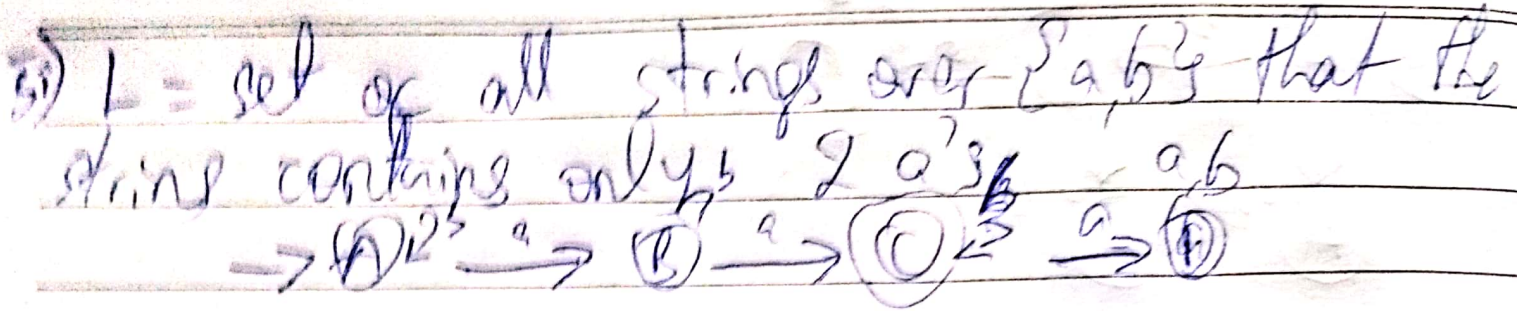 L = set of all strings over {a,b} that the
string contains only 2 a's
b b b a,b
→ A a → B a → C a → D